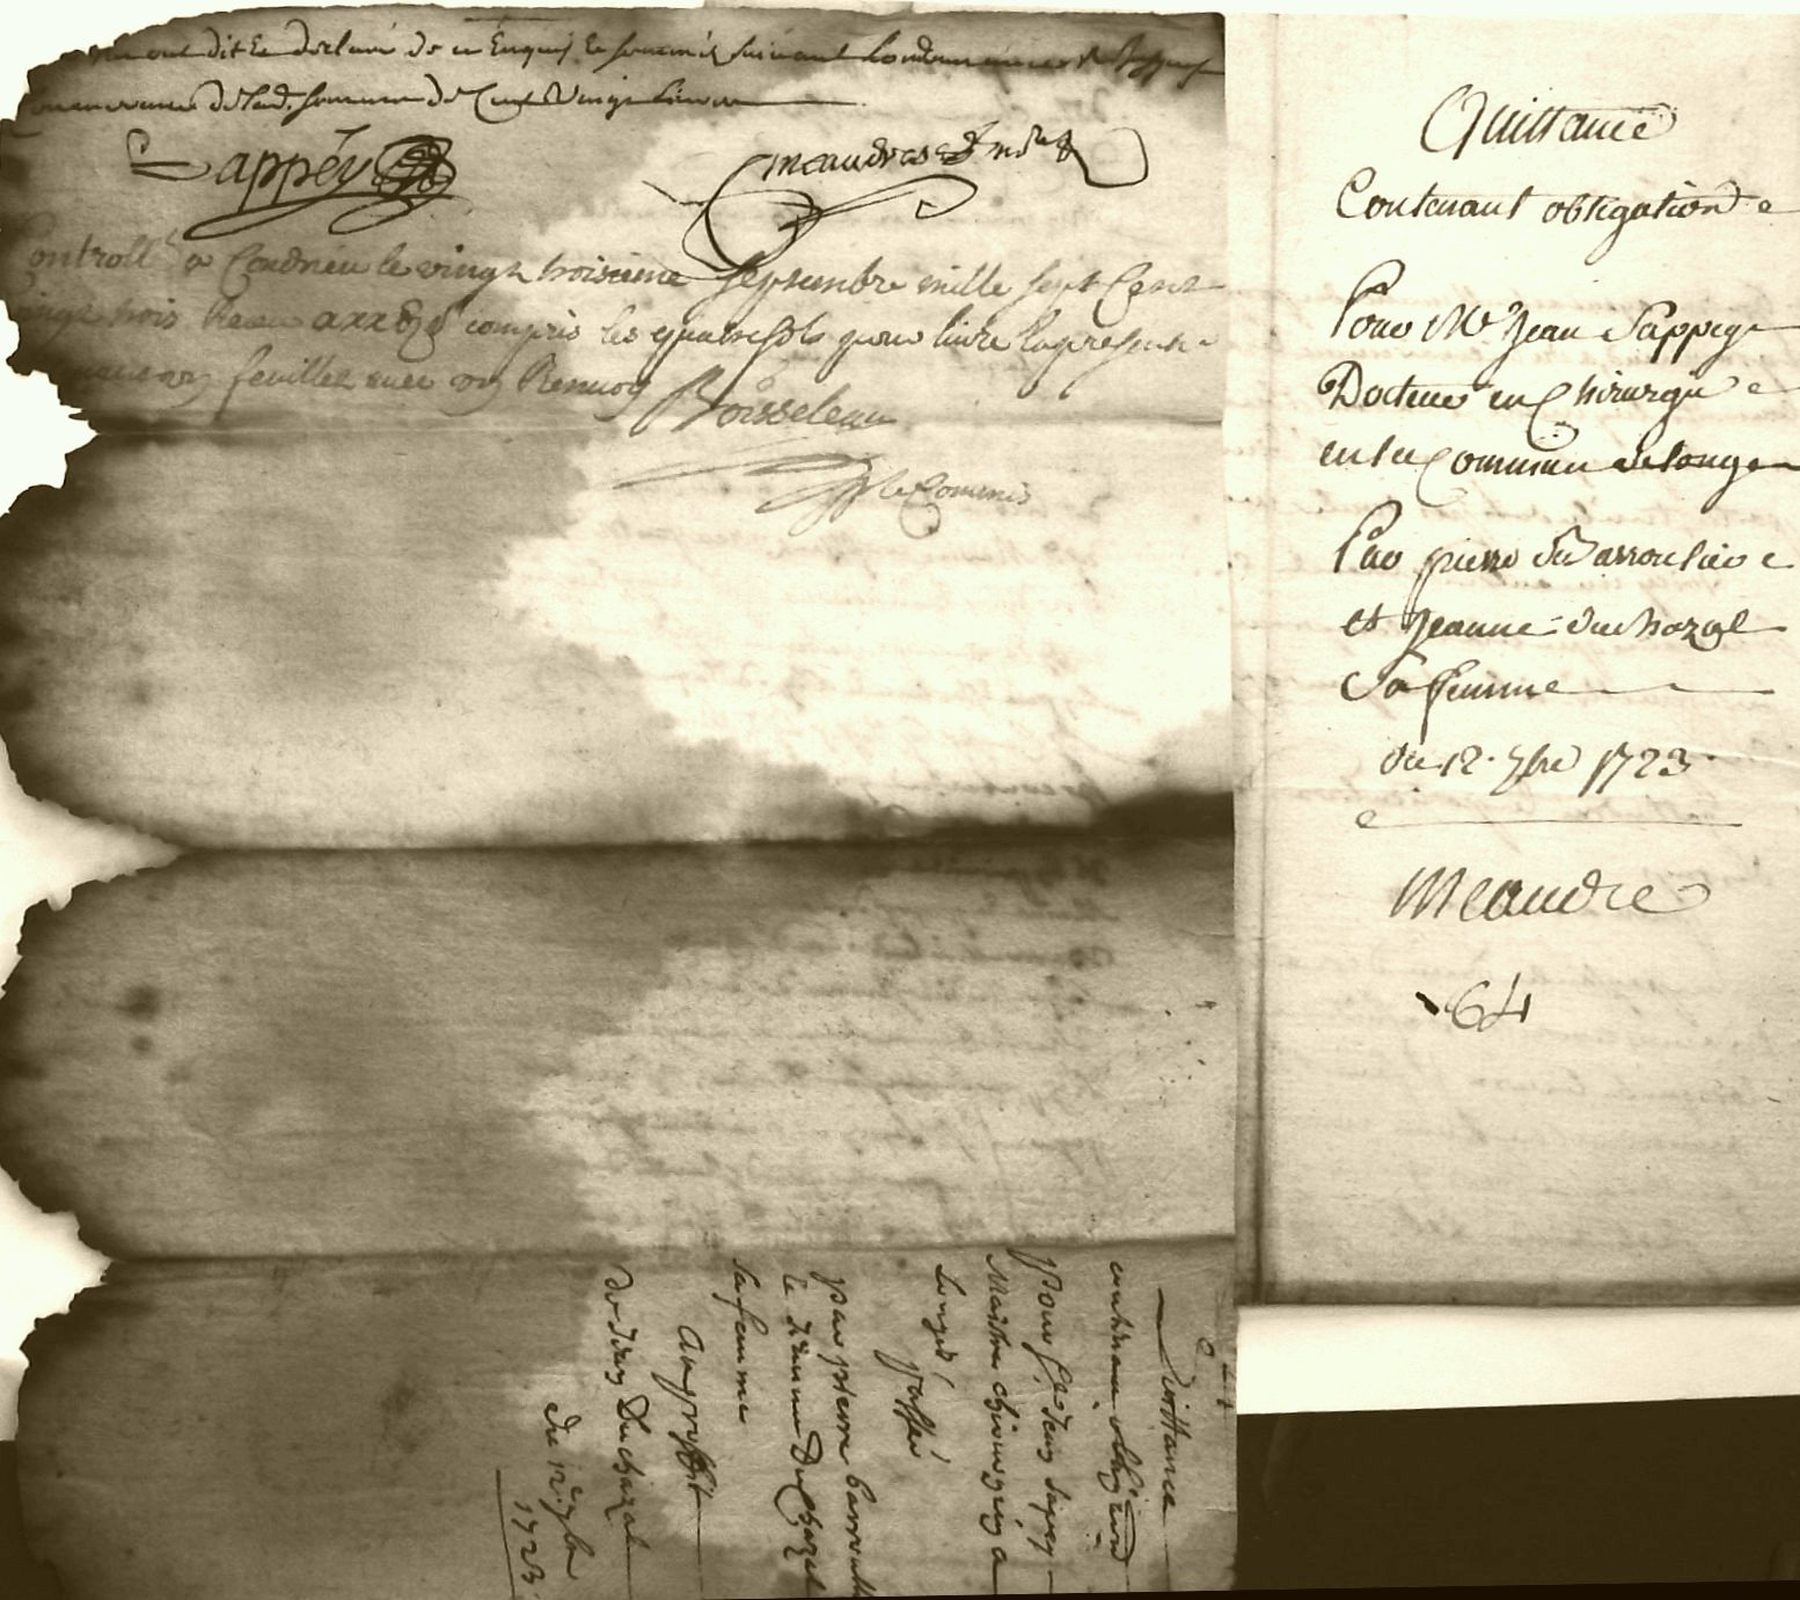 ont dit et declaré de ce Enquis et sommés suivant
de lad. somme de Cent Vingt livres
Sappéy
meandre
Controllé a Condrieu le vingt troisieme Septembre mille sept Cent
vingt trois Receu compris les quatre sols pour livre la presente
feuillet avec un Renvoy
Boisseleau
le Commis
Quittance
Contenant obligation
Pour Mr Jean Sappey
Docteur en Chirurgie
en la Commune de longe
Par pierre
et Jeanne duchazal
Sa femme
du 12. 7bre 1723
Meandre
64
Quittance
contenant obligation
pour Sr Jean Sapey
Maitre chirurgien a
Longes
passée
par pierre
et Jeanne Duchazal
sa femme
au proffit
de Jean Duchazal
du 12e 7bre
1723